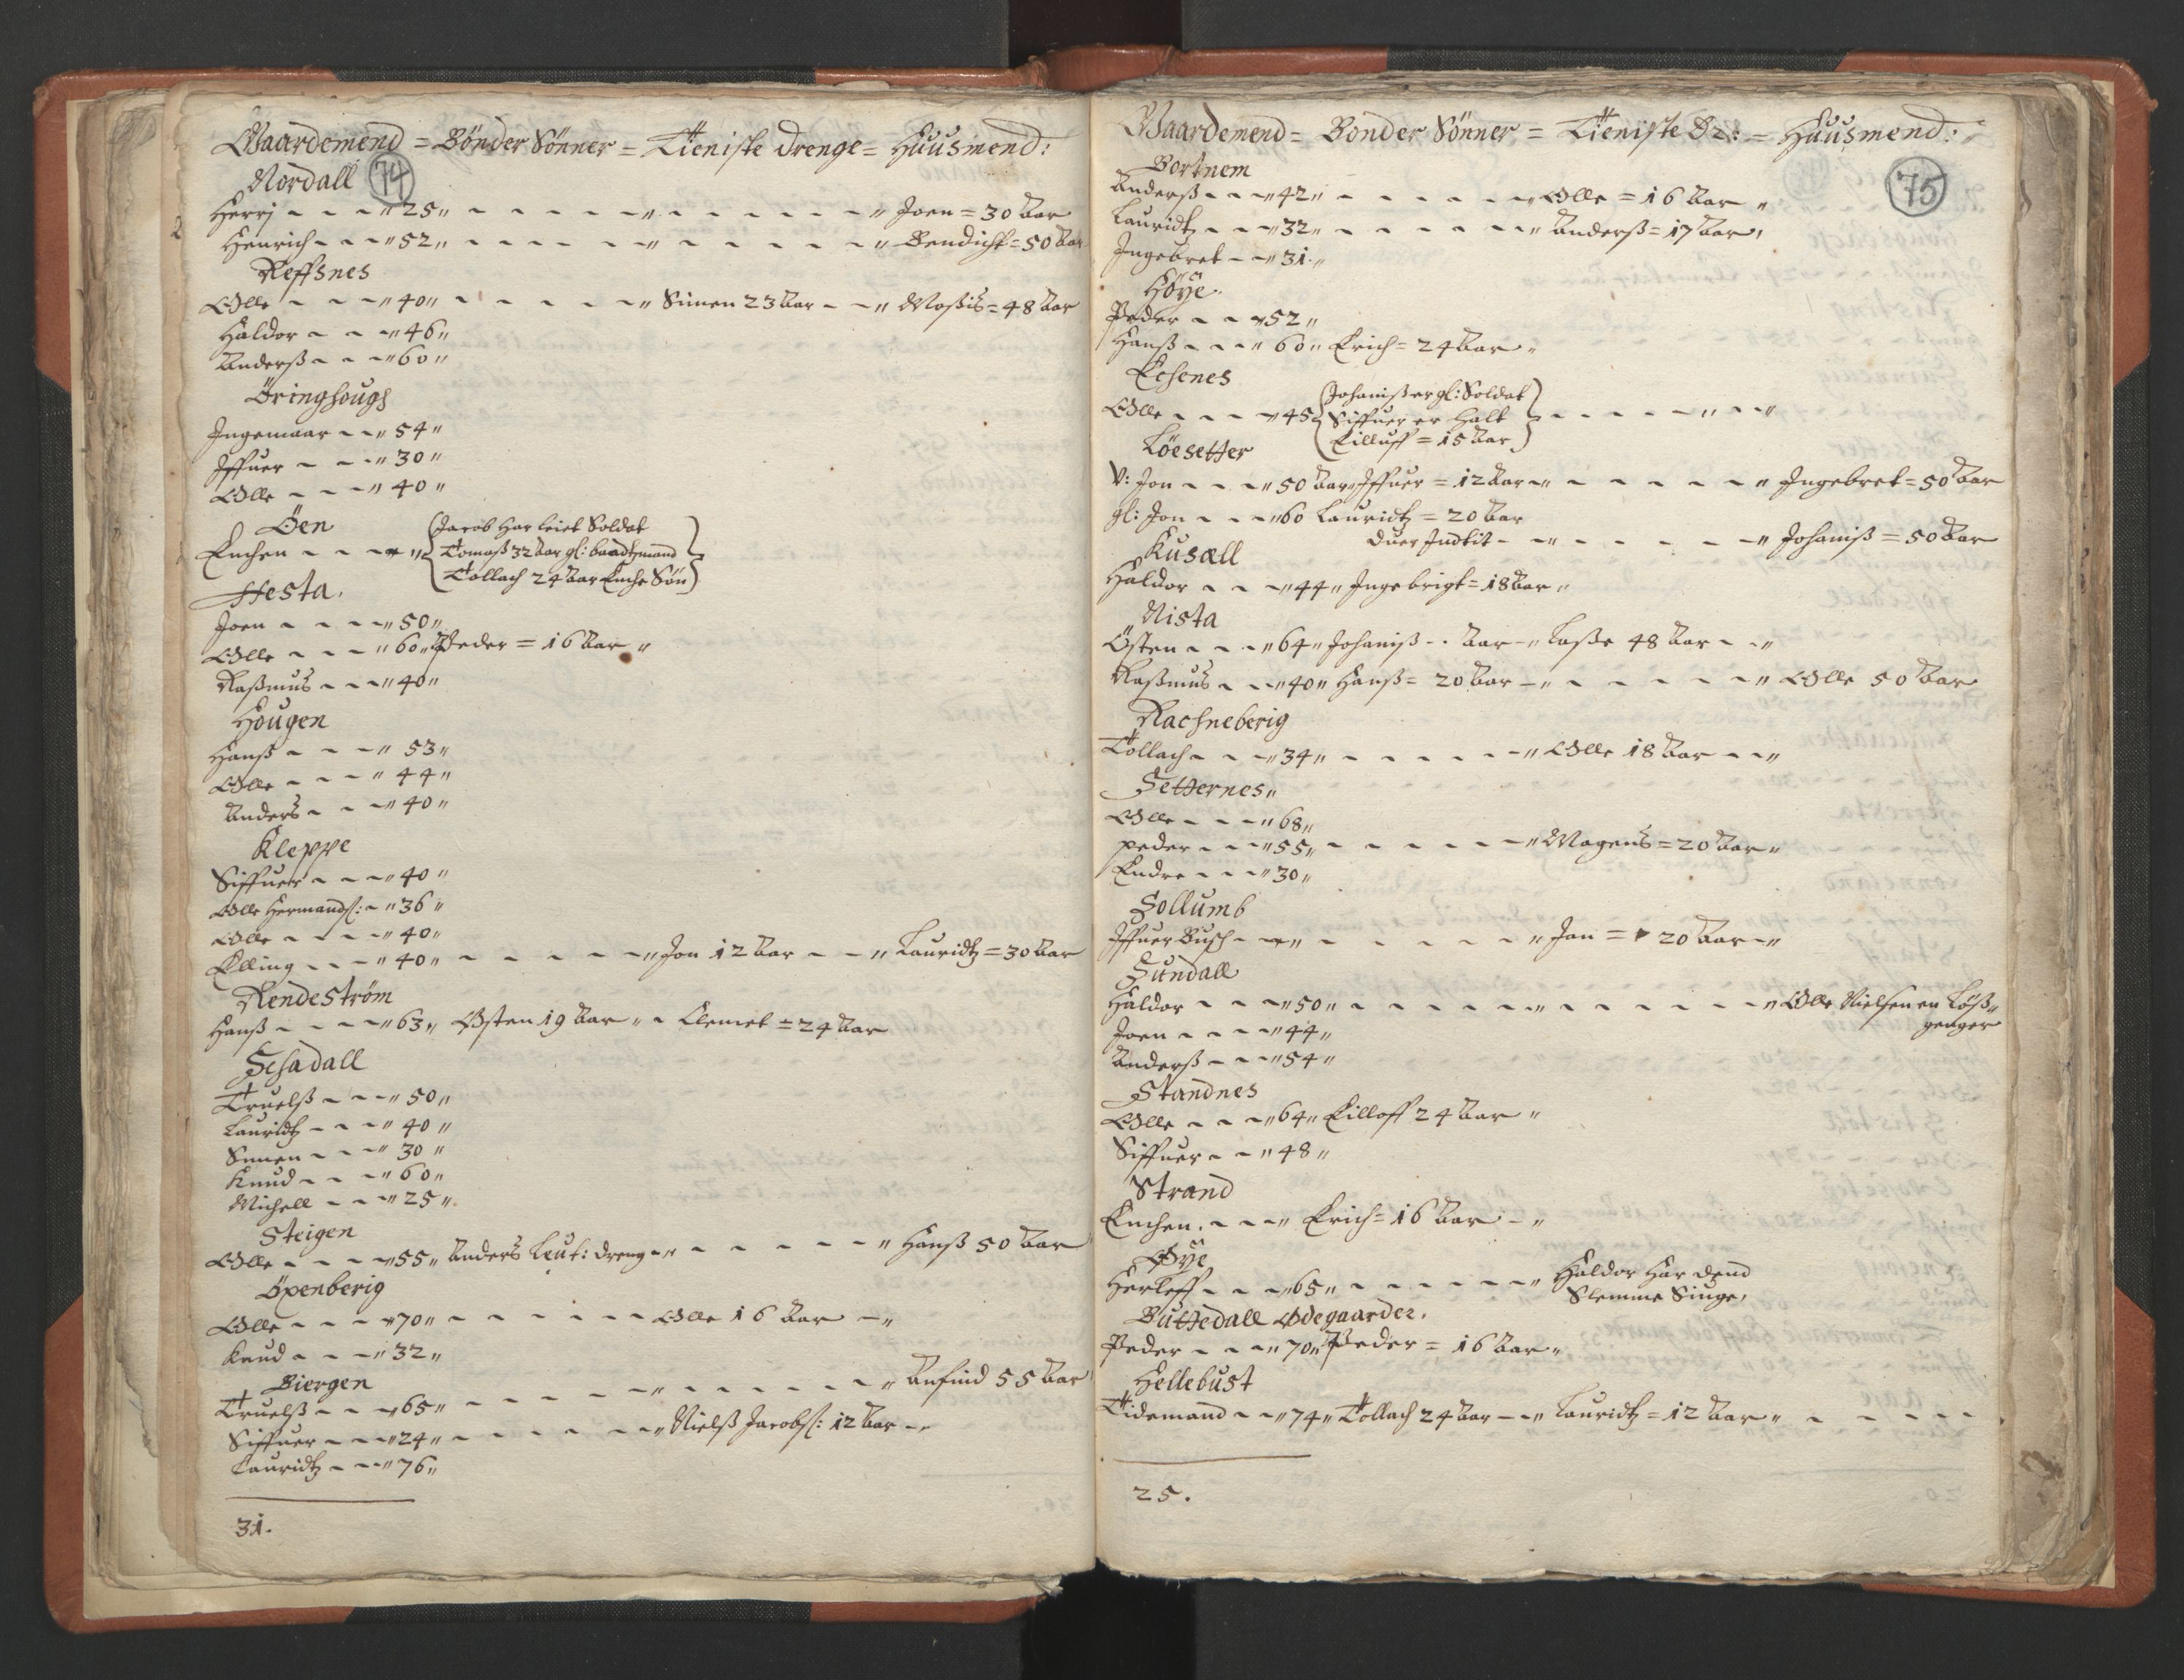 Gaardemend = Bönder Sönner = Tieniste drenge = Huusmend:
Nordall 74
Herrj - - - " 25 " - - - - - " - - - - - " Joen = 30 Aar
Henrich - - - " 52 " - - - - - " - - - - - " Bendicht = 50 Aar
Reffsnes
Olle - - - " 40 " - - - - - " Simen 23 Aar - - " Moßis = 48 Aar
Haldor - - - " 46 "
Anderß - - - " 60 "
Öringhougs
Ingemaar - - " 54 "
Iffuer - - - " 30 "
Olle - - - " 40 "
Öen
Jacob har leiet Soldat
Enchen - - - " Tomaß 32 Aar gl: baadtzmand
Tollach 24 Aar Enche Søn
Hesta.
Joen - - - - " 50 "
Olle - - - " 60 " Peder = 16 Aar "
Raßmus - - - " 40 "
Hougen
Hanß - - - - " 53 "
Olle - - - " 44 "
Anders - - - " 40 "
Kleppe
Siffuer - - - " 40 "
Olle Hermandß: - " 36 "
Olle - - - - " 40 "
Elling - - - " 40 " - - - - - " Jon 12 Aar - - " Lauridtz = 30 Aar
Rendeström
Hanß - - - - " 63 " Østen 19 Aar " - Clemet = 24 Aar
Schadall
Truelß - - - " 50 "
Lauridtz - - - " 40 "
Simen - - - " 30 "
Knud - - - " 60 "
Michell - - - " 25 "
Steigen
Olle - - - - " 55 " Anders Leut: dreng - " - - - - - " Hanß 50 Aar
Öxenberig
Olle - - - - " 70 " - - - - - - Olle 16 Aar - "
Knud - - - " 32 "
Biergen
Truelß - - - " 65 " - - - - - " - - - - - " Anfind 55 Aar
Siffuer - - - " 24 " - - - - - " Nielß Jacobß: 12 Aar - "
Lauridtz - - - " 76 "
31.
Gaardemend = Bonder Sönner = Tieniste Dr: = Huusmend:
Bortnem 75
Anderß - - - " 42 " - - - - - " Olle = 16 Aar "
Lauridtz - - - " 32 " - - - - - " Anderß = 17 Aar "
Ingebret - - " 31 "
Höÿe
Peder - - - " 52 "
Hanß - - - " 60 " Erich = 24 Aar "
Echenes
Johanißer gl: Soldat
Olle - - - " 45 Siffuer er halt - - - - - " - - "
Eilluff = 15 Aar
Löesetter
V: Jon - - - " 50 Aar " Iffuer = 12 Aar - " - - - - - " Ingebret = 50 Aar
gl: Jon - - - " 60 Lauridtz = 20 Aar
duer Indtit - - " - - - - - " Johaniß = 50 Aar
Kusæll
Haldor - - - " 44 " Ingebrigt = 18 Aar "
Nista
Östen - - - " 64 " Johaniß - - Aar - " Laße 48 Aar - - "
Raßmus - - - " 40 " Hanß = 20 Aar - " - - - - - " Olle 50 Aar
Rachneberig
Tollach - - - " 34 " - - - - - " Olle 18 Aar - - "
Setternes "
Olle - - - - " 68 "
peder - - - " 55 " - - - - - " Magens = 20 Aar "
Endre - - - " 30 "
Sollumb
Iffuer Busch - - " - - - - - " Jan = 20 Aar - "
Sundall
Haldor - - - " 50 " - - - - - " - - - - - " Olle Nielsen en Löß "
genger
Joen - - - - " 44 "
Anderß - - - " 54 "
Standnes
Olle - - - " 64 " Eilloff 24 Aar "
Siffuer - - " 48 "
Strand
Enchen. - - - " Erich = 16 Aar - "
Øÿe
Herleff - - - " 65 " - - - - - " Haldor har dend
Slemme Siuge.
Buttedall Ødegaarder.
Peder - - - " 70 " Peder = 16 Aar "
Hellebust
Tidemand - - " 74 " Tollach 24 Aar - - " Lauridtz = 12 Aar " - - - -
25.